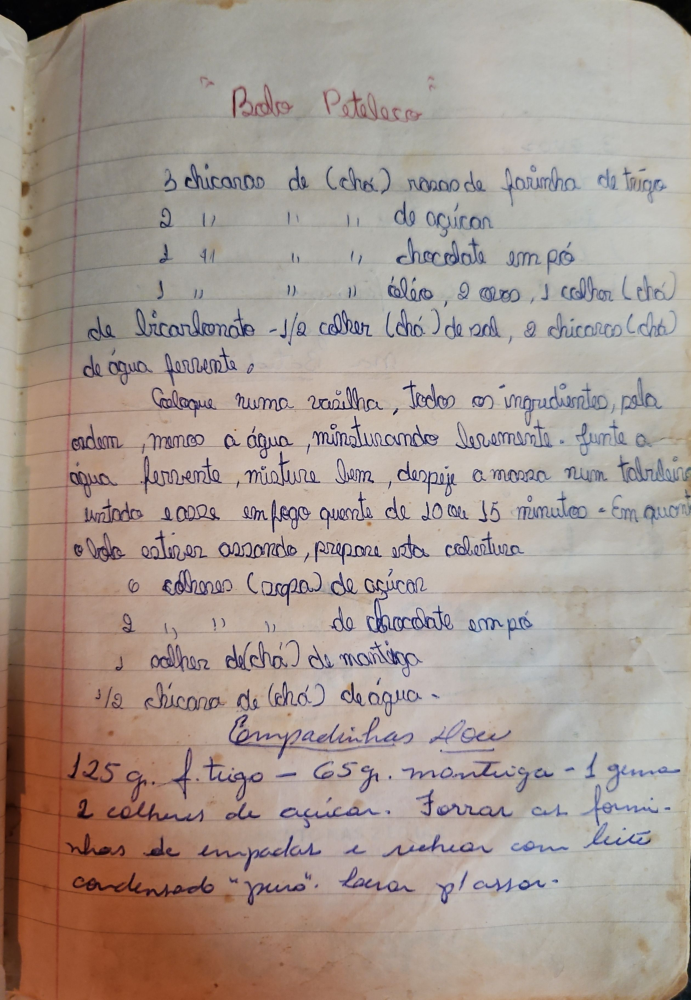 "Bolo Peteleco"
3 chicaras de (chá) rasas de farinha de trigo
2 " " " de açúcar
1 " " " chocolate em pó
1 " " " óleo, 2 ovos, 1 colher (chá)
de bicarbonato - 1/2 colher (chá) de sal, 2 chicaras (chá)
de água fervente.
Coloque numa vasilha, todos os ingredientes, pela
ordem, menos a água, misturando levemente. Junte a
água fervente, misture bem, despeje a massa num tabuleiro
untado e asse em fogo quente de 10 ou 15 minutos - Em quant
o bolo estiver assando, prepare esta cobertura
6 colheres (sopa) de açúcar
2 " " " de chocolate em pó
1 colher de (chá) de manteiga
1/2 chicara de (chá) de água.
Empadinhas
125 g. f. trigo - 65 gr. manteiga - 1 gema
2 colheres de açúcar. Forrar as formi-
nhas de empadas e rechear com leite
condensado "puro". Levar p/ assar.